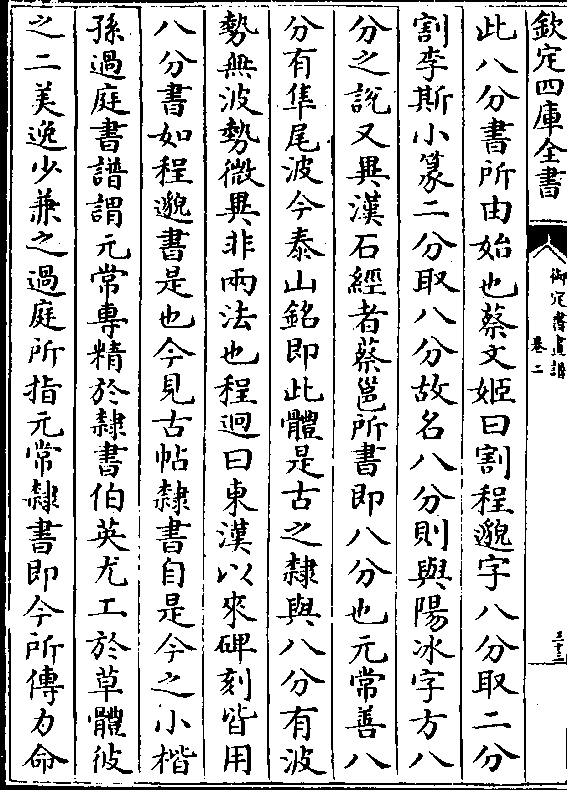 欽定四庫全書
御定書畫譜
卷二
三十二
此八分書所由始也蔡文姬曰割程邈字八分取二分
割李斯小篆二分取八分故名八分則與陽冰字方八
分之説又異漢石經者蔡邕所書即八分也元常善八
分有隼尾波今泰山銘即此體是古之隸與八分有波
勢無波勢微異非兩法也程迥曰東漢以來碑刻皆用
八分書如程邈書是也今見古帖隸書自是今之小楷
孫過庭書譜謂元常專精於隸書伯英尤工於草體彼
之二美逸少兼之過庭所指元常隸書即今所傳力命